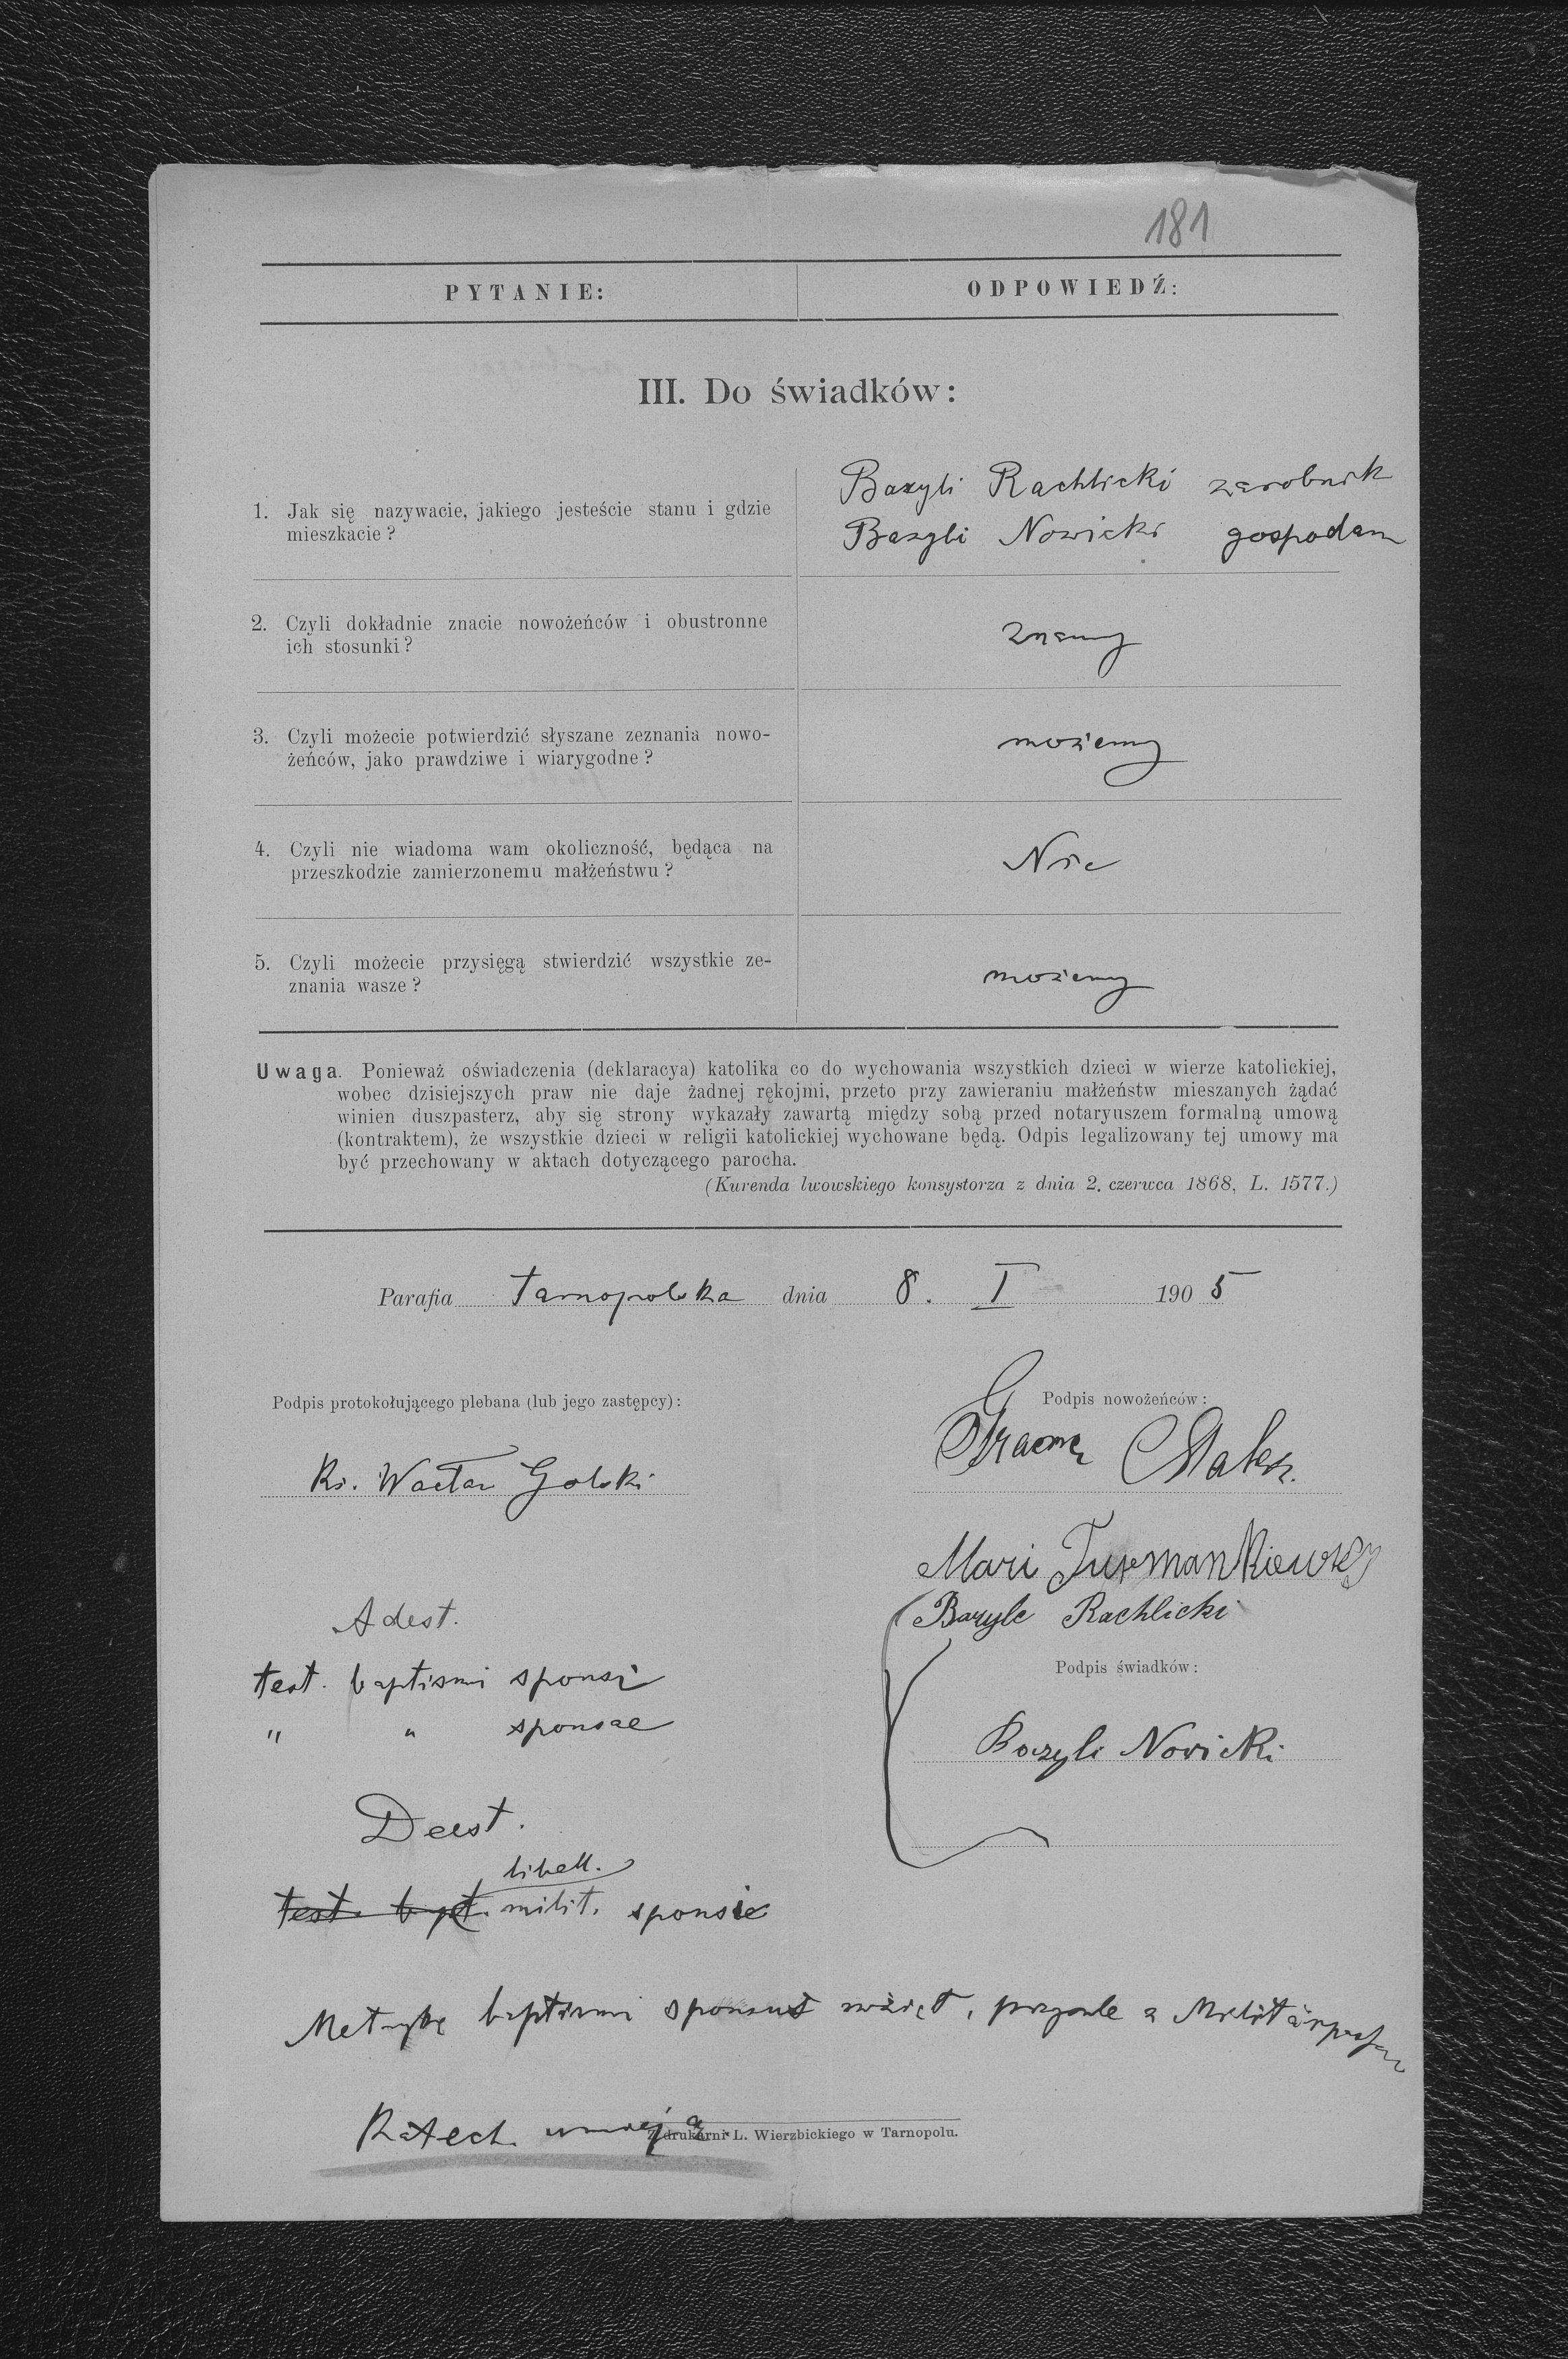 181
PYTANIE:
ODPOWIEDŹ:
III. Do świadków:
1. Jak się nazywacie, jakiego jesteście stanu i gdzie
mieszkacie?
Bazyli Rachlicki zarobnik
Bazyli Nowicki gospodarz
2. Czyli dokładnie znacie nowożeńców i obustronne
ich stosunki?
znamy
3. Czyli możecie potwierdzić słyszane zeznania nowo-
żeńców, jako prawdziwe i wiarygodne?
możemy
4. Czyli nie wiadoma wam okoliczność, będąca na
przeszkodzie zamierzonemu małżeństwu?
Nie
5. Czyli możecie przysięgą stwierdzić wszystkie ze-
znania wasze?
możemy
Uwaga. Ponieważ oświadczenia (deklaracya) katolika co do wychowania wszystkich dzieci w wierze katolickiej,
wobec dzisiejszych praw nie daje żadnej rękojmi, przeto przy zawieraniu małżeństw mieszanych żądać
winien duszpasterz, aby się strony wykazały zawartą między sobą przed notaryuszem formalną umową
(kontraktem), że wszystkie dzieci w religii katolickiej wychowane będą. Odpis legalizowany tej umowy ma
być przechowany w aktach dotyczącego parocha.
(Kurenda lwowskiego konsystorza z dnia 2. czerwca 1868, L. 1577.)
Parafia Tarnopolska dnia 8. I 1905
Podpis protokołującego plebana (lub jego zastępcy):
Podpis nowożeńców:
Ks. Wacław Golski
Mari
Bazyle Rachlicki
Podpis świadków:
Bazyli Nowicki
Adest.
test. baptismi sponsi
" " sponsae
Deest.
libell.
test. bapt. milit. sponsi
Metrykę baptismi sponsus
Katech. umieją
Z drukarni L. Wierzbickiego w Tarnopolu.